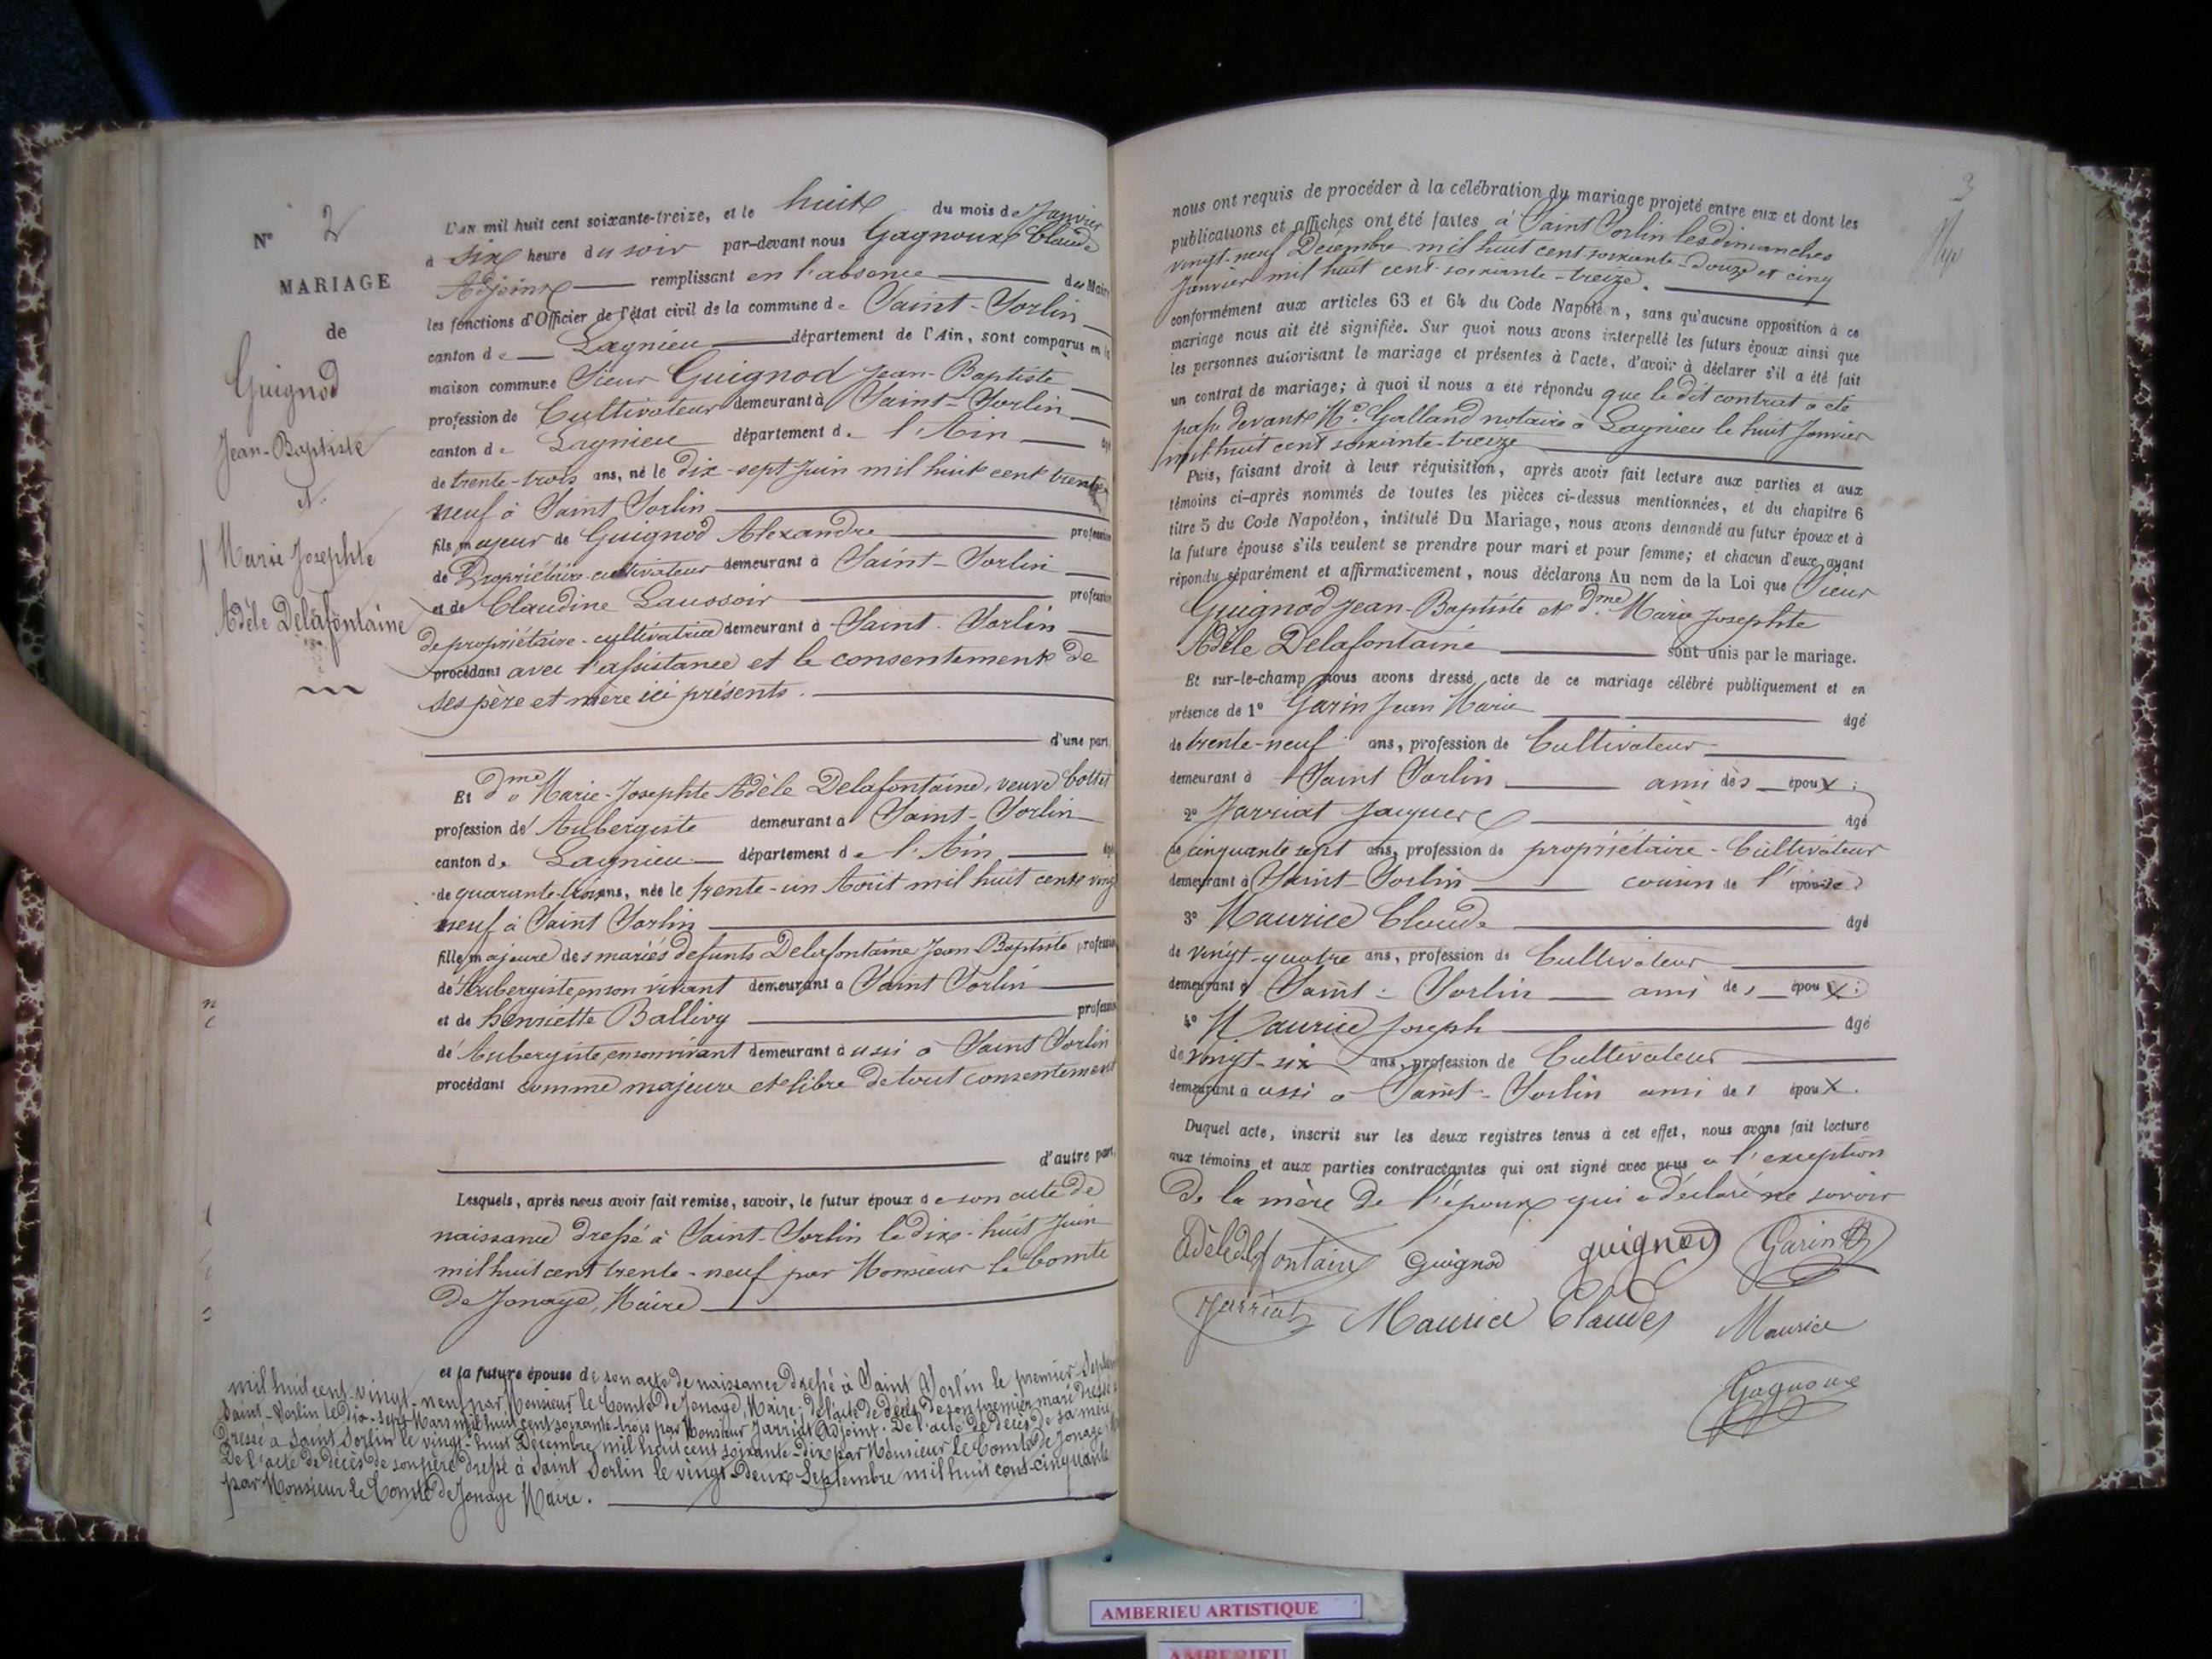 N° 2
MARIAGE
de
Guignod
Jean-Baptiste
et
Marie Josephte
Adèle Delafontaine
L'AN mil huit cent soixante-treize, et le huit du mois de Janvier
à six heure du soir par-devant nous Gagnoux Claude
Adjoint remplissant en l'absence du Maire
les fonctions d'Officier de l'état civil de la commune de Saint-Sorlin
canton de Lagnieu département de l'Ain, sont comparus en la
maison commune Sieur Guignod Jean-Baptiste
profession de Cultivateur demeurant à Saint-Sorlin
canton de Lagnieu département de l'Ain âgé
de trente-trois ans, né le dix-sept Juin mil huit cent trente
neuf à Saint Sorlin
fils majeur de Guignod Alexandre profession
de Propriétaire-cultivateur demeurant à Saint-Sorlin
et de Claudine Laussoir profession
de propriétaire-cultivatrice demeurant à Saint-Sorlin
procédant avec l'assistance et le consentement de
ses père et mère ici présents.
d'une part,
Et dme Marie-Josephte Adèle Delafontaine, veuve Cottet
profession de Aubergiste demeurant à Saint-Sorlin
canton de Lagnieu département de l'Ain âgé
de quarante-trois ans, née le trente-un Août mil huit cent vingt
neuf à Saint Sorlin
fille majeure des mariés défunts Delafontaine Jean-Baptiste profession
de Aubergiste, en son vivant demeurant à Saint Sorlin
et de Henriette Ballivy profession
de Aubergiste, en son vivant demeurant aussi à Saint Sorlin
procédant comme majeure et libre de tout consentement
d'autre part,
Lesquels, après nous avoir fait remise, savoir, le futur époux de son acte de
naissance dressé à Saint-Sorlin le dix-huit Juin
mil huit cent trente-neuf par Monsieur le Comte
de Jonage, Maire
et la future épouse de son acte de naissance dressé à Saint Sorlin le premier Septembre
mil huit cent-vingt-neuf par Monsieur le Comte de Jonage, Maire; de l'acte de décès de son premier mari dressé à
Saint-Sorlin le dix-sept Mars mil huit cent soixante-trois par Monsieur Jarriat Adjoint. De l'acte de décès de sa mère
dressé à Saint Sorlin le vingt-huit Décembre mil huit cent soixante-dix par Monsieur le Comte de Jonage
De l'acte de décès de son père dressé à Saint Sorlin le vingt-deux Septembre mil huit cent-cinquante
par Monsieur le Comte de Jonage Maire.
3
nous ont requis de procéder à la célébration du mariage projeté entre eux et dont les
publications et affiches ont été faites à Saint Sorlin les dimanches
vingt-neuf Décembre mil huit cent soixante-douze et cinq
Janvier mil huit cent soixante-treize.
conformément aux articles 63 et 64 du Code Napoléon, sans qu'aucune opposition à ce
mariage nous ait été signifiée. Sur quoi nous avons interpellé les futurs époux ainsi que
les personnes autorisant le mariage et présentes à l'acte, d'avoir à déclarer s'il a été fait
un contrat de mariage; à quoi il nous a été répondu que le dit contrat a été
passé devant Me Galland notaire à Lagnieu le huit Janvier
mil huit cent soixante-treize
Puis, faisant droit à leur réquisition, après avoir fait lecture aux parties et aux
témoins ci-après nommés de toutes les pièces ci-dessus mentionnées, et du chapitre 6
titre 5 du Code Napoléon, intitulé Du Mariage, nous avons demandé au futur époux et à
la future épouse s'ils veulent se prendre pour mari et pour femme; et chacun d'eux ayant
répondu séparément et affirmativement, nous déclarons Au nom de la Loi que Sieur
Guignod Jean-Baptiste et dme Marie Josephte
Adèle Delafontaine sont unis par le mariage.
Et sur-le-champ nous avons dressé acte de ce mariage célébré publiquement et en
présence de 1° Garin Jean Marie âgé
de trente-neuf ans, profession de Cultivateur
demeurant à Saint Sorlin ami des époux;
2° Jarriat Jacques âgé
de cinquante sept ans, profession de propriétaire-Cultivateur
demeurant à Saint-Sorlin cousin de l'épouse;
3° Maurice Claude âgé
de vingt-quatre ans, profession de Cultivateur
demeurant à Saint-Sorlin ami des époux;
4° Maurice Joseph âgé
de vingt-six ans, profession de Cultivateur
demeurant aussi à Saint-Sorlin ami des époux.
Duquel acte, inscrit sur les deux registres tenus à cet effet, nous avons fait lecture
aux témoins et aux parties contractantes qui ont signé avec nous à l'exception
de la mère de l'époux qui a déclaré ne savoir
Adèle delafontaine guignod guignod Garin
Jarriat Maurice Claude Maurice
Gagnoux
AMBERIEU ARTISTIQUE
AMBERIEU